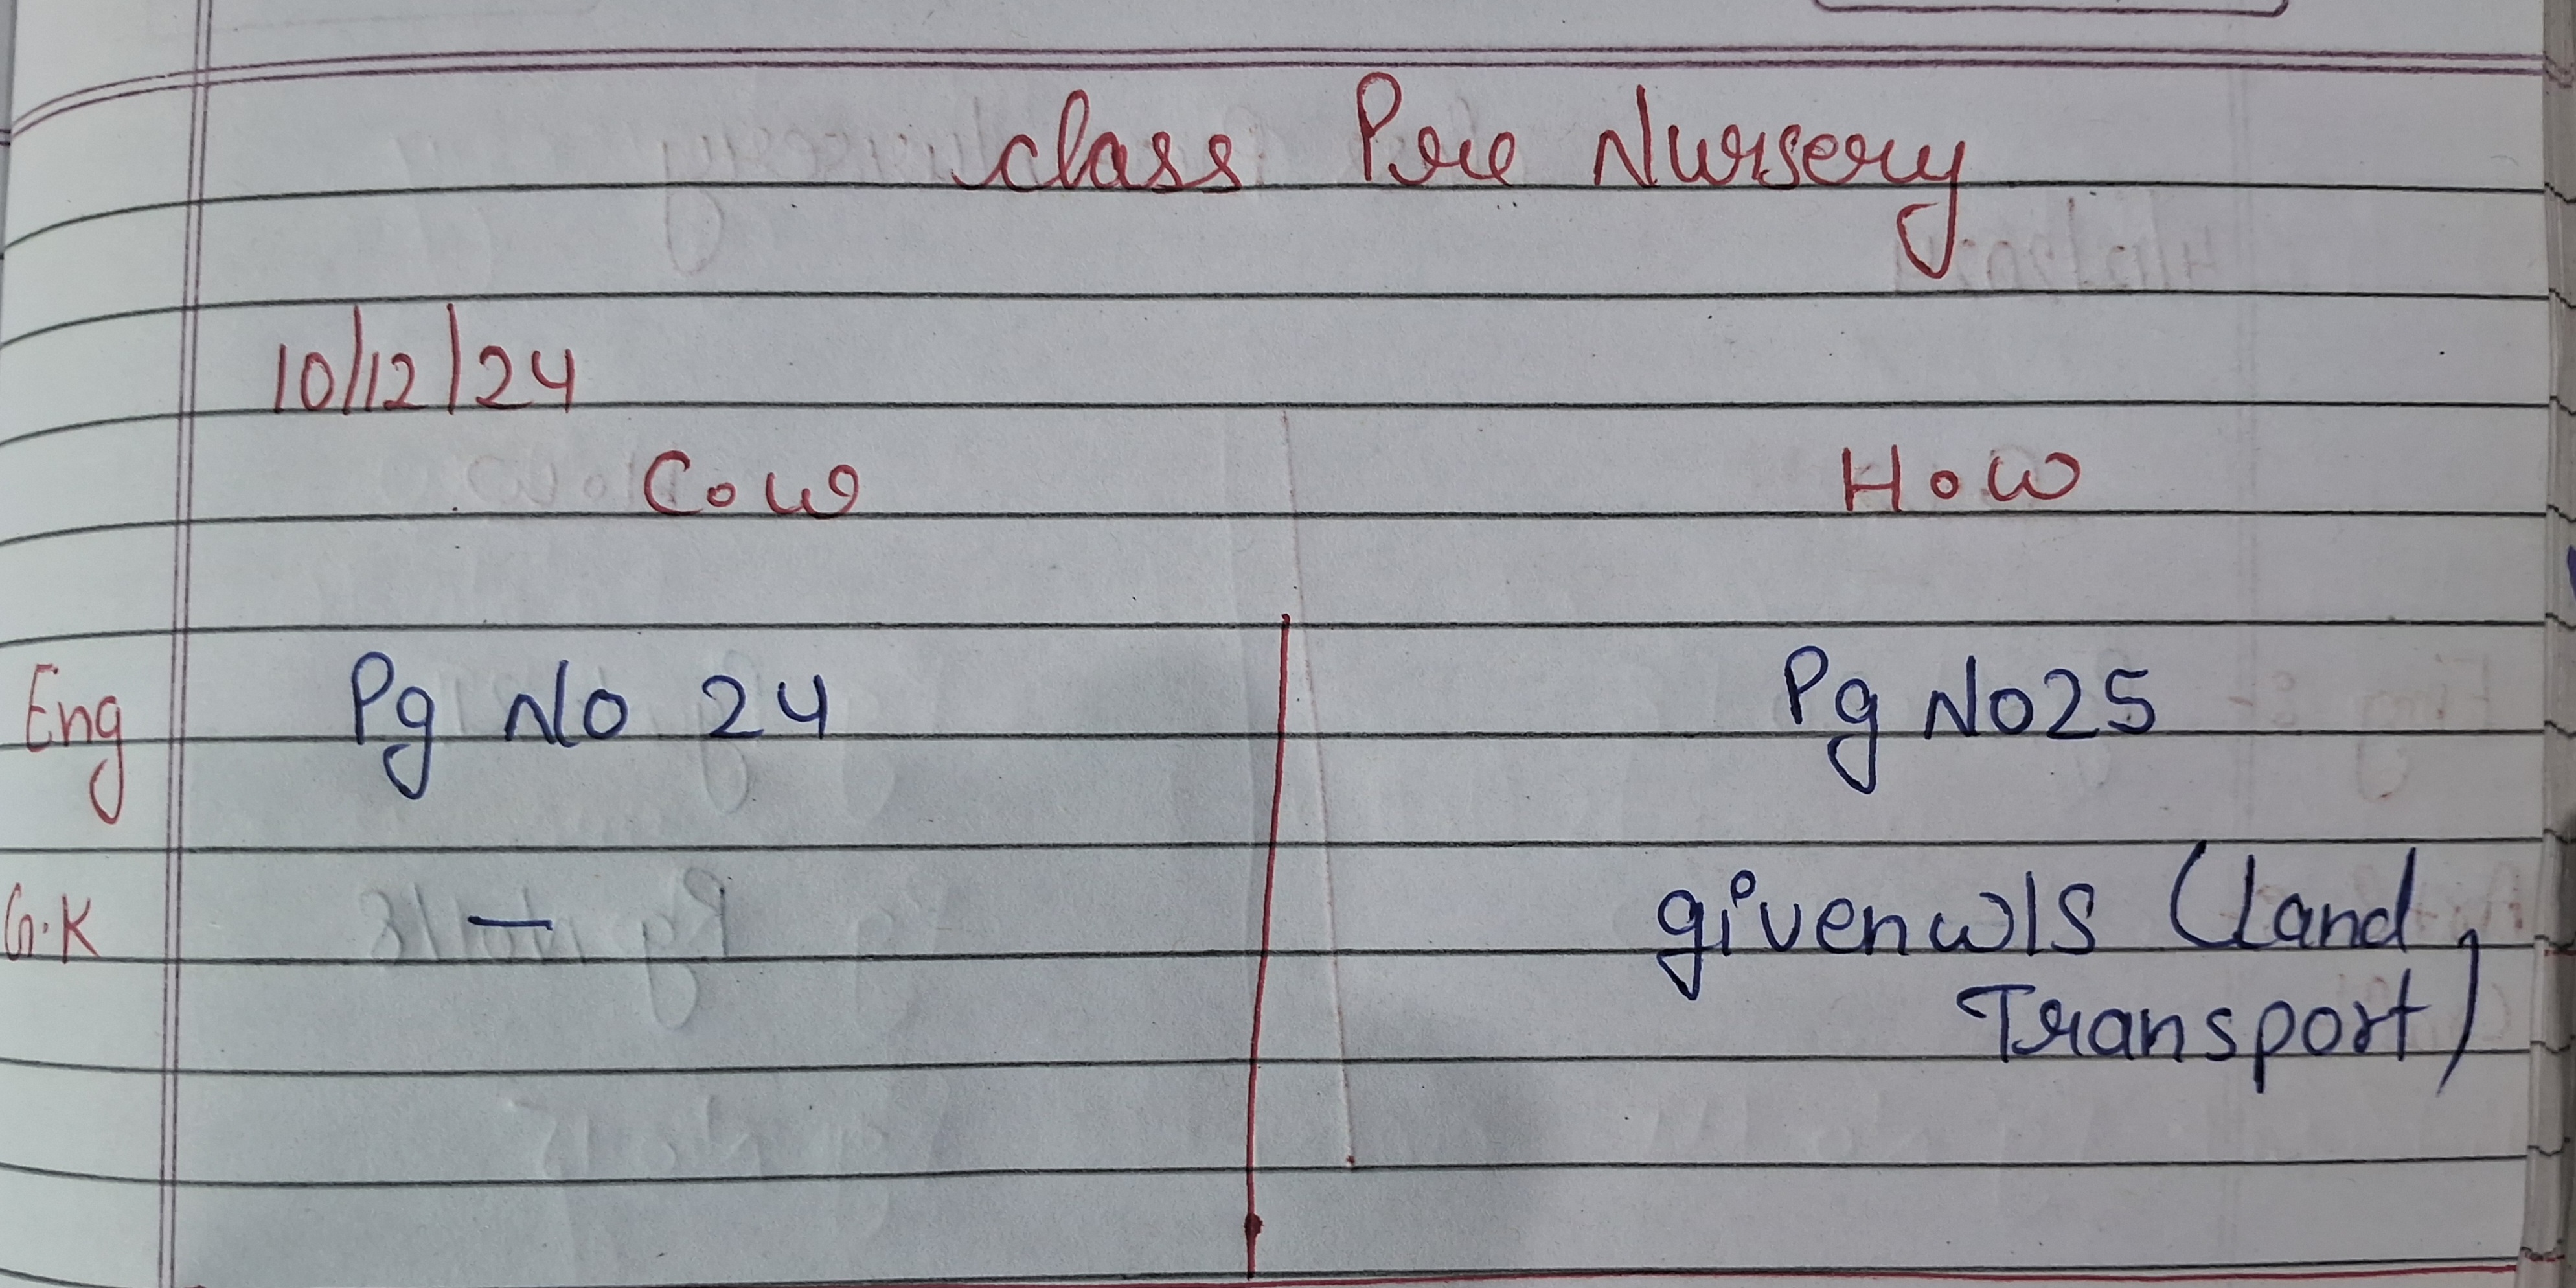 class Pre Nursery
10/12/24
C.W H.W
Eng Pg No 24 Pg No 25
G.K — given w/s (Land
Transport)